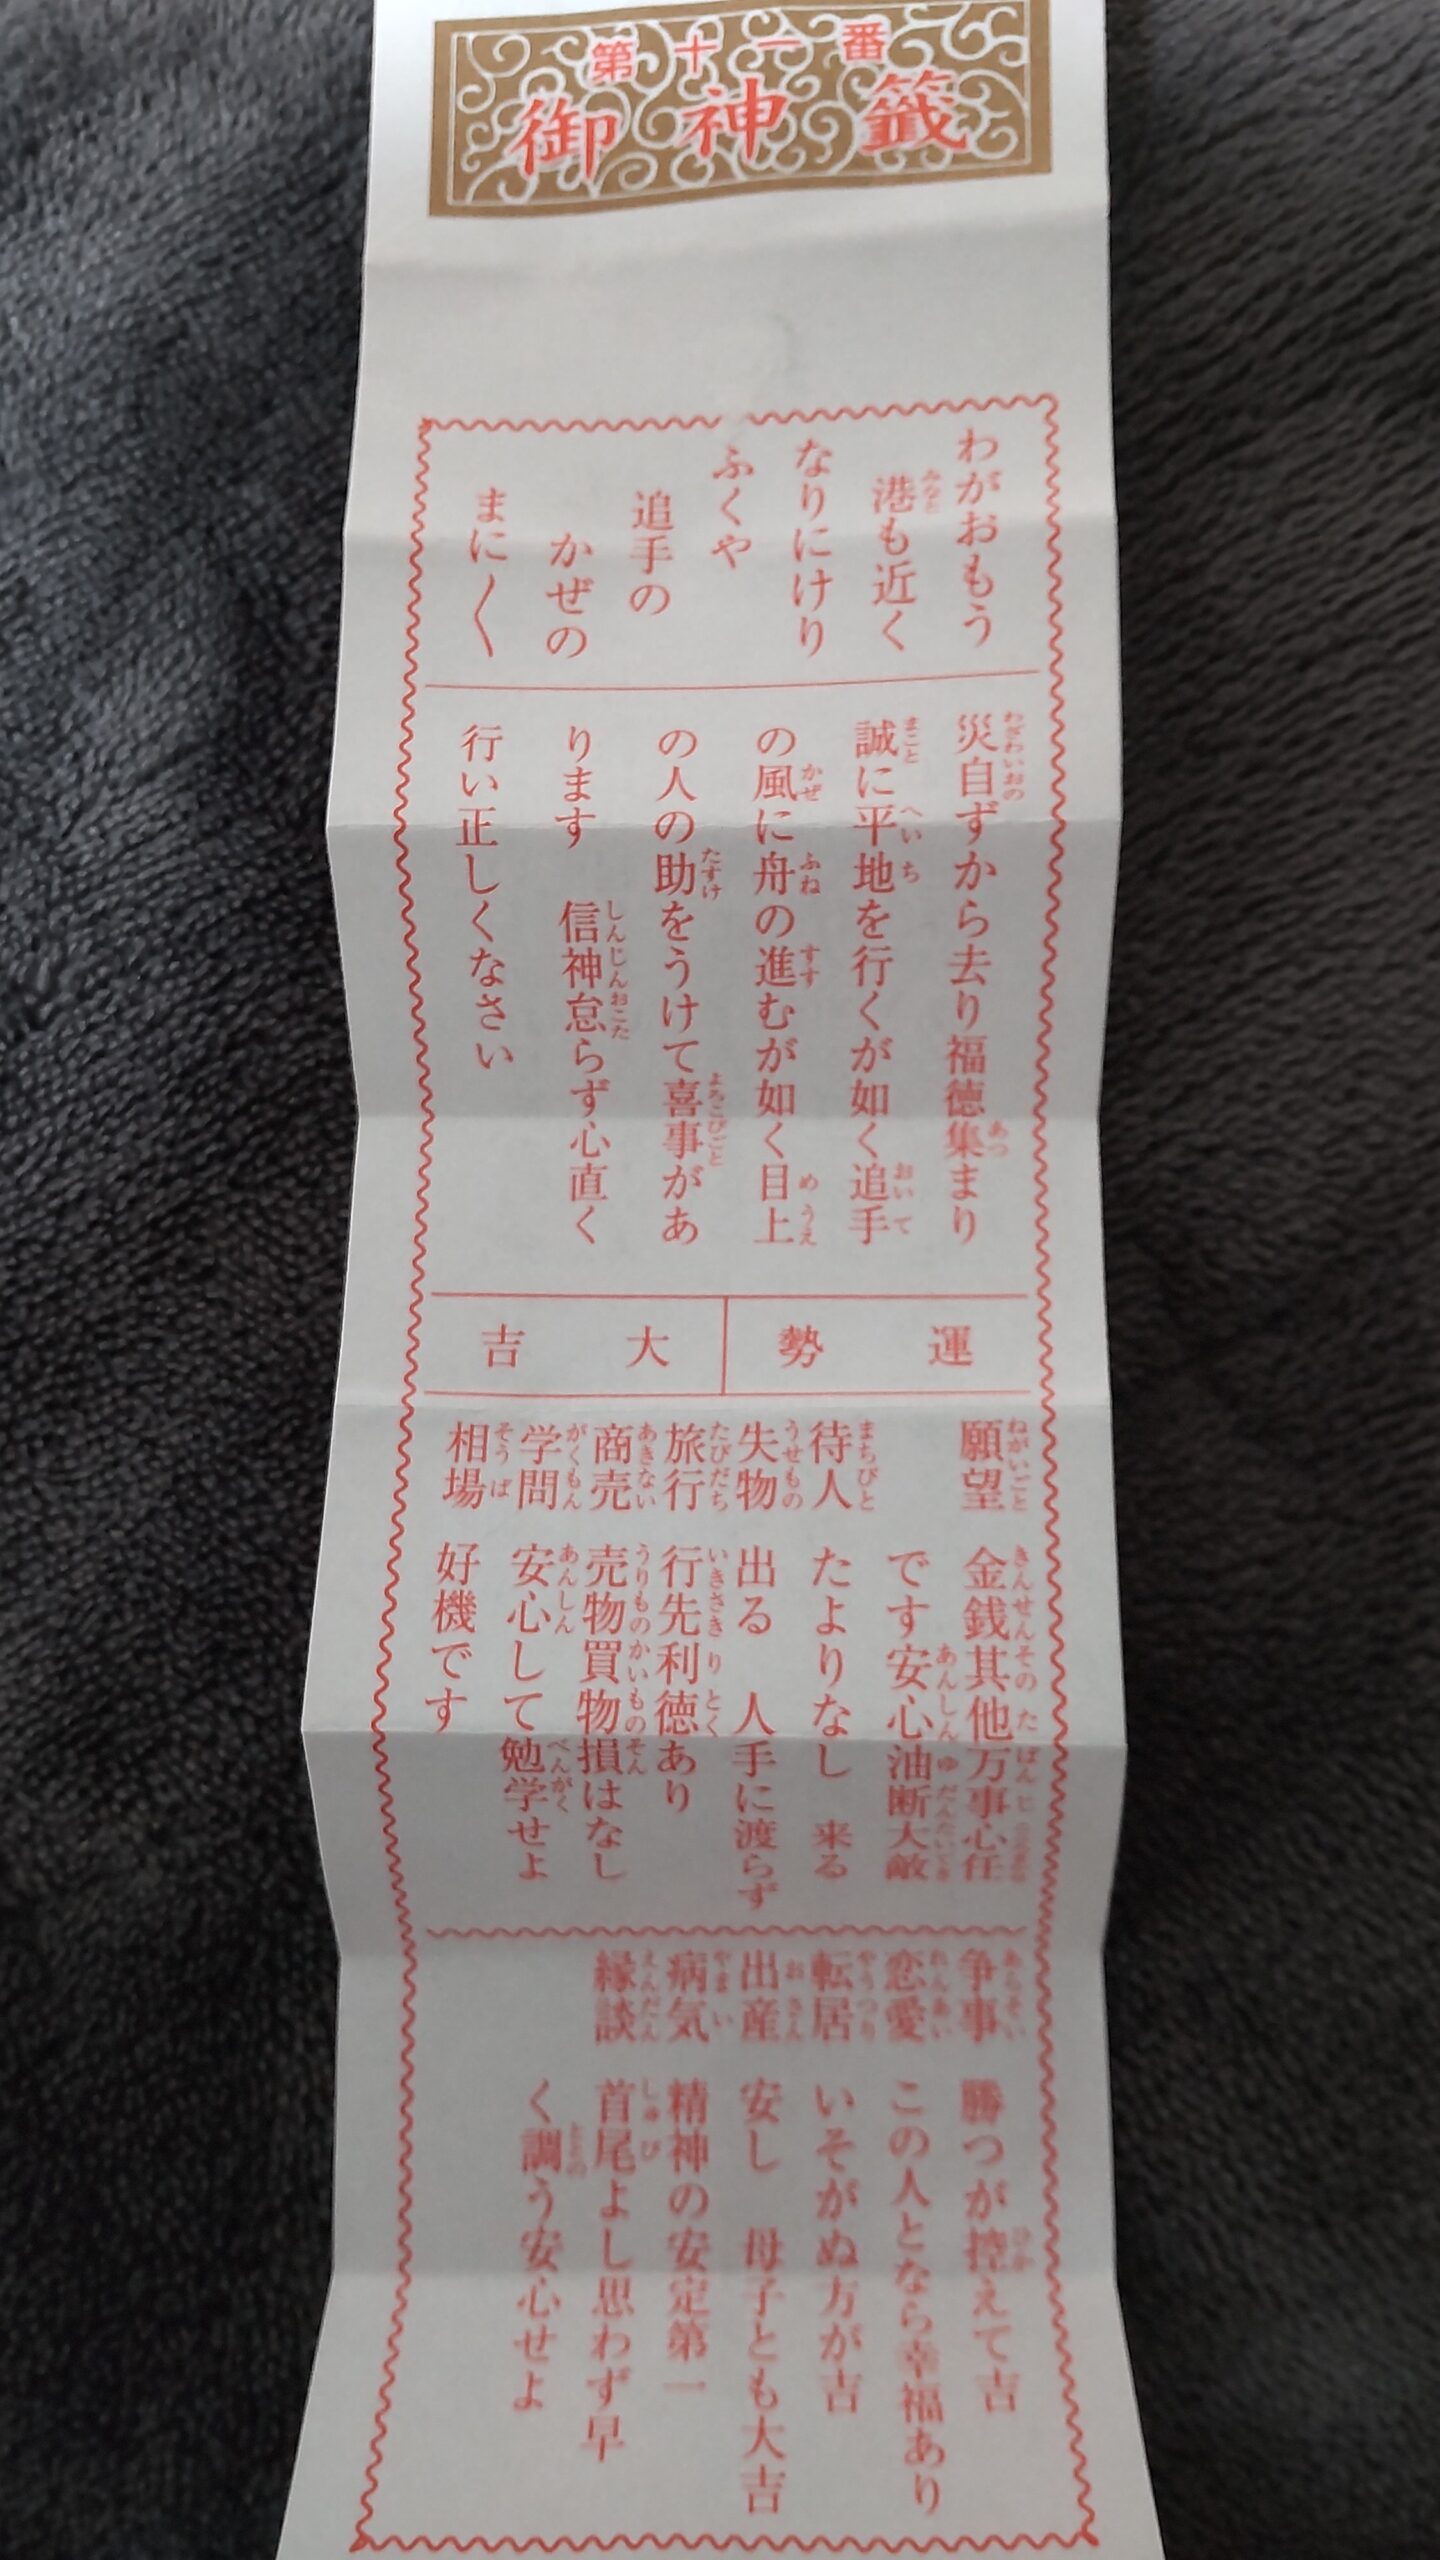 第十一番
御神籤
わがおもう
港も近く
なりにけり
ふくや
追手の
かぜの
まに〱
災自ずから去り福徳集まり
誠に平地を行くが如く追手
の風に舟の進むが如く目上
の人の助をうけて喜事があ
ります　信神怠らず心直く
行い正しくなさい
運勢　大吉
願望　金銭其他万事心任
です安心油断大敵
待人　たよりなし　来る
失物　出る　人手に渡らず
旅行　行先利徳あり
商売　売物買物損はなし
学問　安心して勉学せよ
相場　好機です
争事　勝つが控えて吉
恋愛　この人となら幸福あり
転居　いそがぬ方が吉
出産　安し　母子とも大吉
病気　精神の安定第一
縁談　首尾よし思わず早
く調う安心せよ